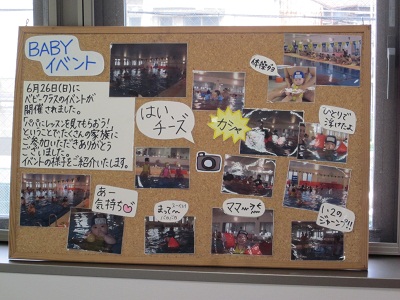 BABY
イベント
6月26日(日)に
ベビークラスのイベントが
開催されました。
「パパにレッスンを見てもらおう!」
ということでたくさんの家族に
ご参加いただきありがとう
ございました。
イベントの様子をご紹介いたします。
はい
チーズ
カシャ
ひとりで
浮けたよ
あー
気持ち
まって〜
ママ〜
1・2の
ジャ〜ンプ!!